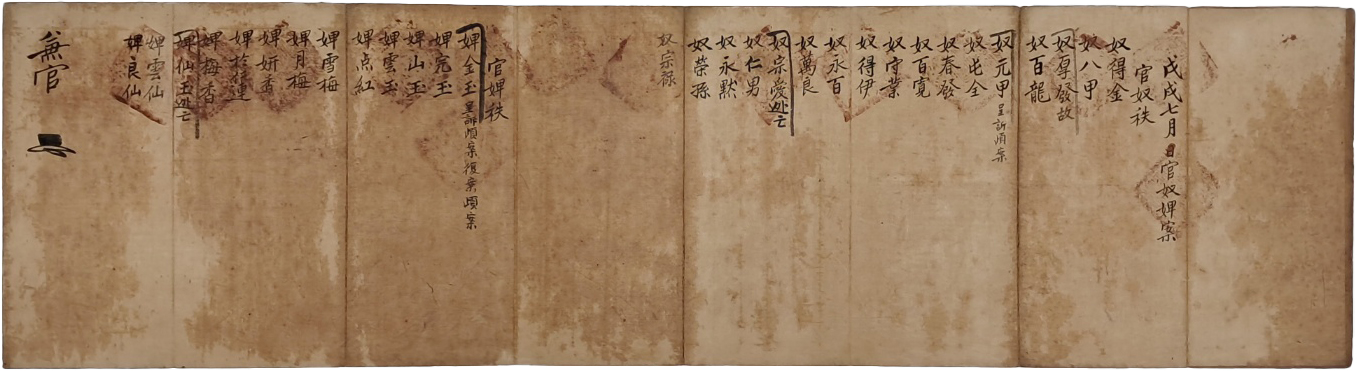 戊戌七月 日官奴婢案
官奴秩
奴得金
奴八甲
奴厚發故
奴百龍
奴元甲呈訴頉案
奴屯全
奴春發
奴百寬
奴守業
奴得伊
奴永百
奴萬良
奴宗愛逃亡
奴仁男
奴永默
奴榮孫
奴宗祿
官婢秩
婢金玉呈訴頉案復案頉案
婢完玉
婢山玉
婢雲玉
婢点紅
婢雪梅
婢月梅
婢妍香
婢於蓮
婢梅香
婢仙玉逃亡
婢雲仙
婢良仙
兼官